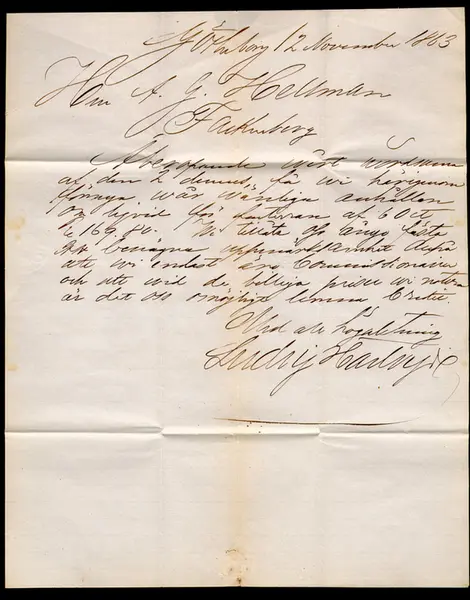 Göteborg 12 November 1863
Herr A. G. Hellman
Falkenberg
Åberopande wårt wördsamma
af den 2 dennes, få wi härigenom
förnya wår wänliga anhållan
om liqvid för fakturan af 6 Oct
å 169.80. Wi tillåta oss ännu fästa
benägna uppmärksamhet derpå
att wi endast äro Commissionairer
och att wid de billiga priser wi notera
är det oss omöjligt lemna Credit
Med all högaktning
Ludvig